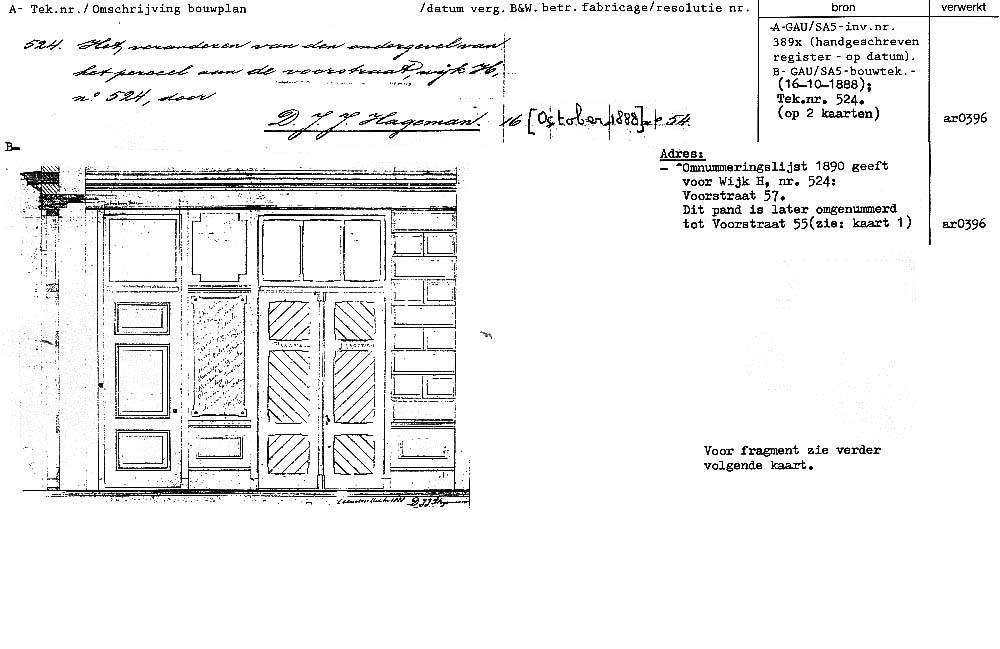 A- Tek.nr./Omschrijving bouwplan /datum verg. B&W. betr. fabricage/resolutie nr. bron verwerkt
524. Het veranderen van den ondergevel van
het perceel aan de voorstraat, wijk H,
n.o 524, door
D. J. J. Hageman. 16 [October 1888] p. 54.
A-GAU/SA5-inv.nr.
389x (handgeschreven
register - op datum).
B- GAU/SA5-bouwtek.-
(16-10-1888);
Tek.nr. 524.
(op 2 kaarten)
ar0396
B-
Adres:
- Omnummeringslijst 1890 geeft
voor Wijk H, nr. 524:
Voorstraat 57.
Dit pand is later omgenummerd
tot Voorstraat 55(zie: kaart 1)
ar0396
Voor fragment zie verder
volgende kaart.